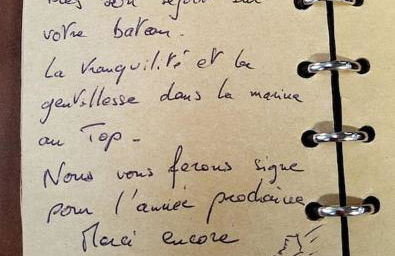 très bon séjour sur
votre bateau.
La tranquilité et la
gentillesse dans la marina
au Top -
Nous vous ferons signe
pour l'année prochaine
Merci encore